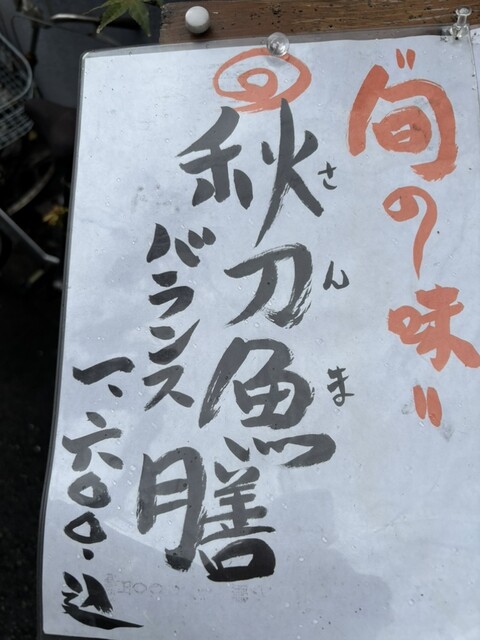 〃旬の味〃
回
秋刀魚
さんま
バランス
膳
一、六〇〇・込